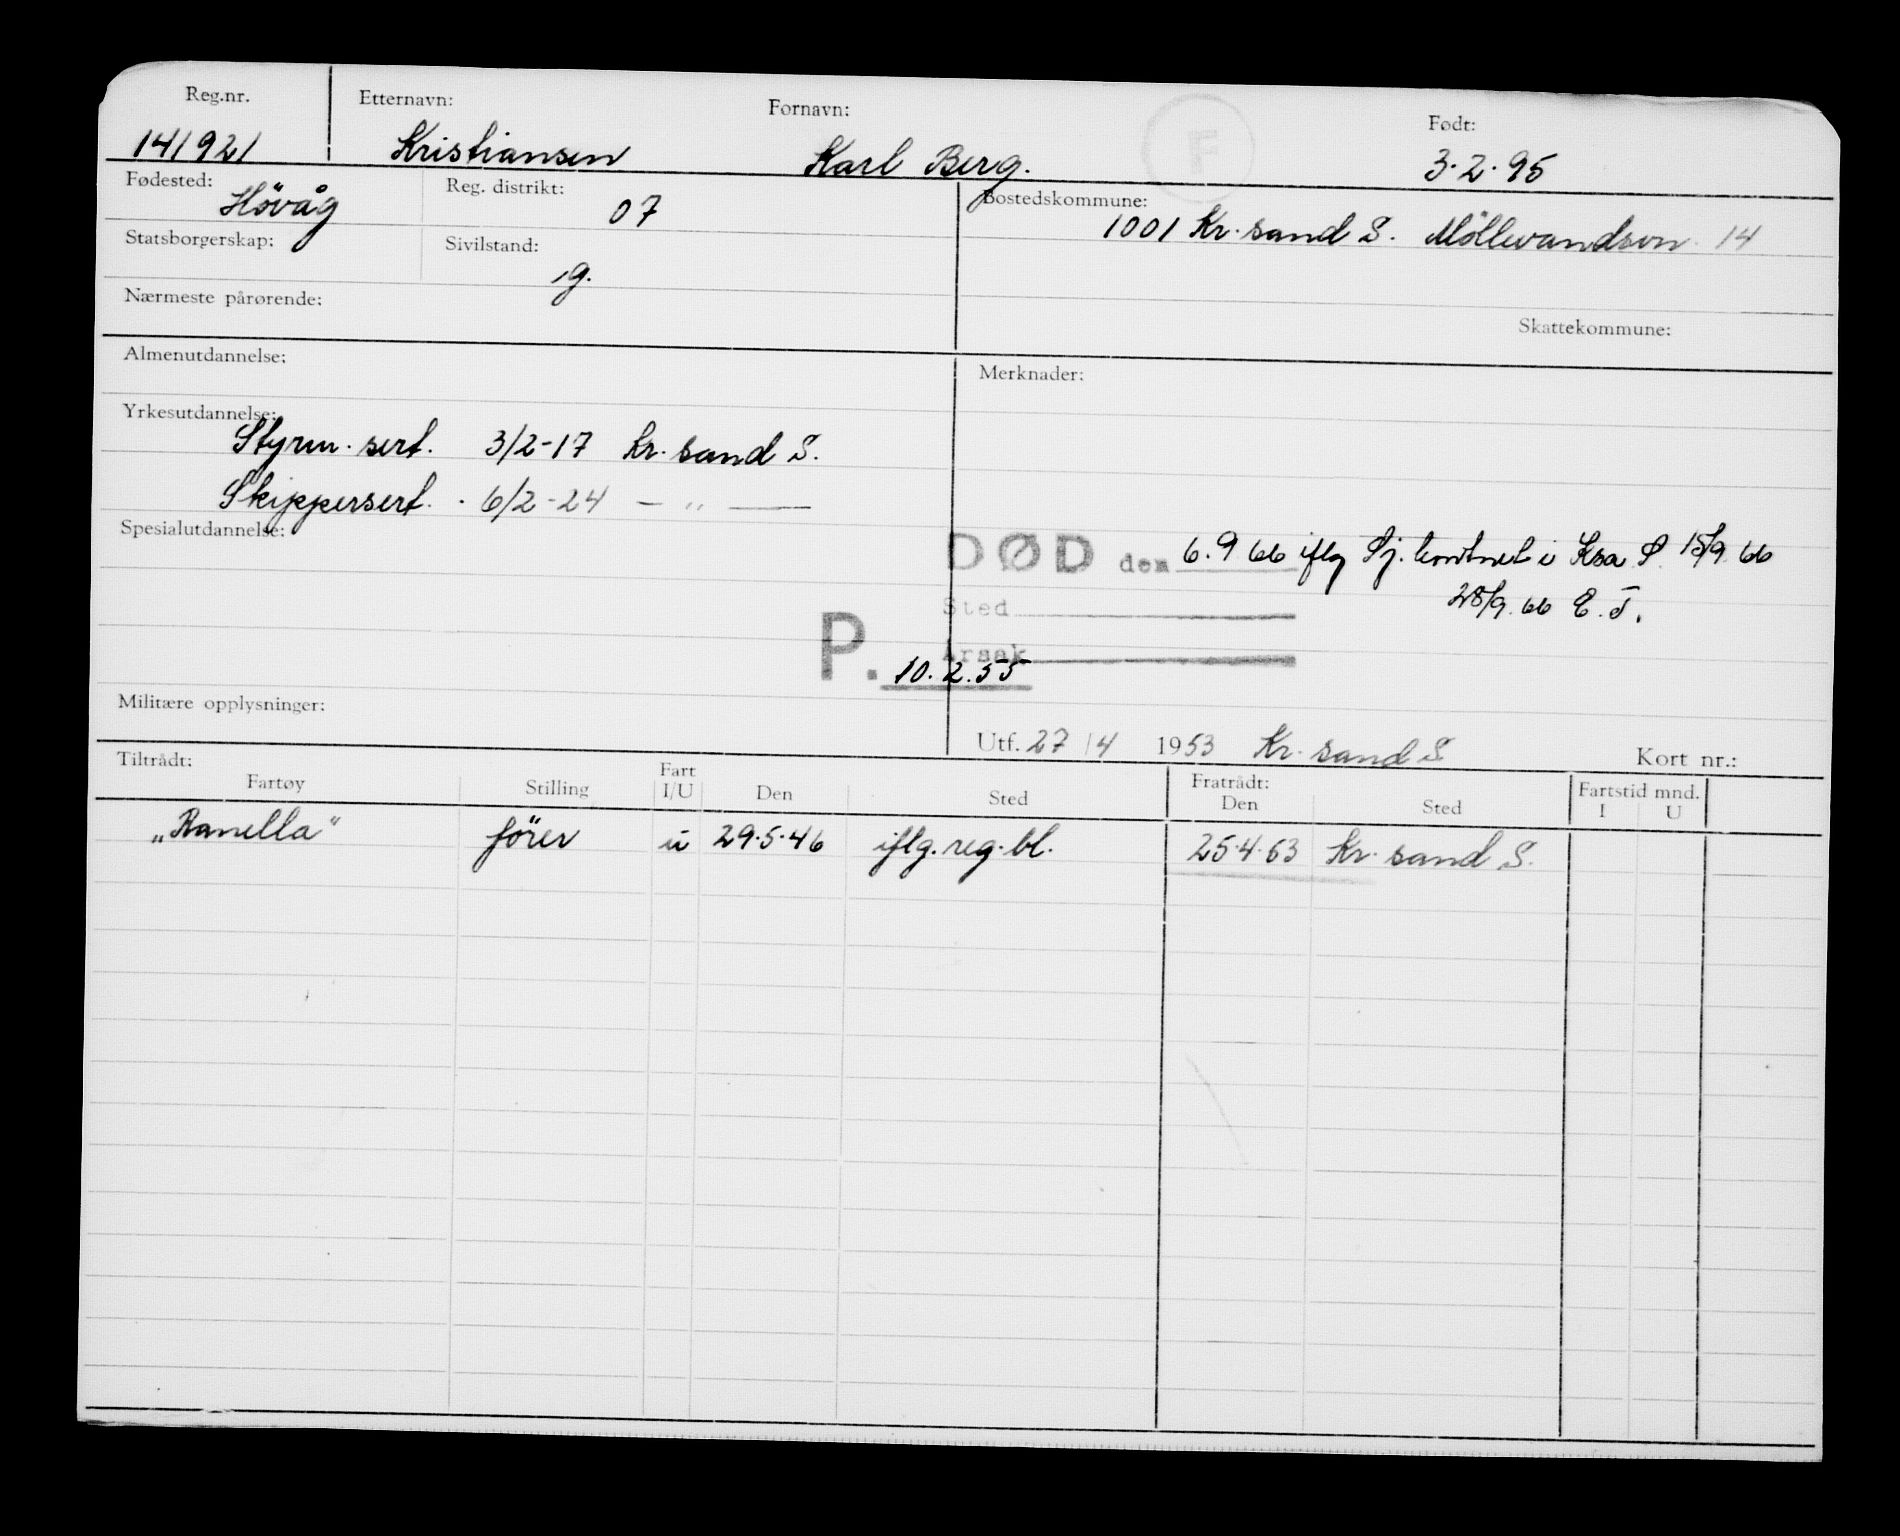 Reg.nr. Etternavn: Fornavn: Født:
141921 Kristiansen Karl Berg. 3.2.95
F
Fødested: Reg. distrikt: Bostedskommune:
Hövåg 07 1001 Kr.sand S. Möllevandsvn. 14
Statsborgerskap: Sivilstand:
g.
Nærmeste pårørende: Skattekommune:
Almenutdannelse: Merknader:
Yrkesutdannelse:
Styrm. sert. 3/2-17 Kr. sand S.
Skippersert. 6/2-24 — " —
Spesialutdannelse:
DØD den 6.9 66 iflg Sj. kontret i Ksa S. 15/9 66
Sted 28/9.66 E.T.
Årsak
P. 10.2.55
Militære opplysninger:
Utf. 27/4 1953 Kr. sand S Kort nr.:
Tiltrådt: Fratrådt: Fartstid mnd.
Fartøy Stilling Fart I/U Den Sted Den Sted I U
„Ranella" förer u 29.5.46 iflg. reg. bl. 25.4.53 Kr. sand S.